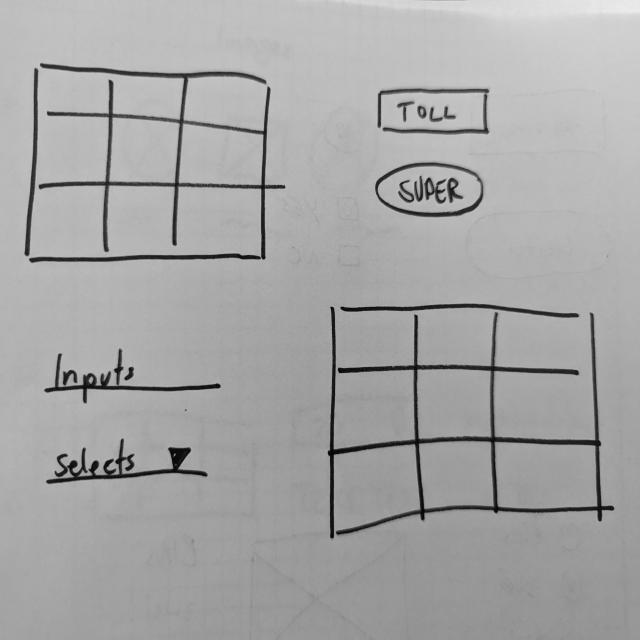 TOLL
SUPER
Inputs
Selects